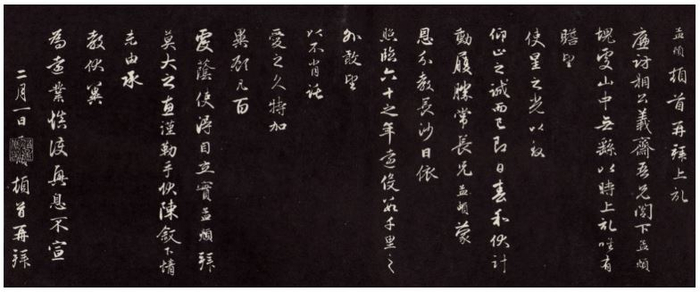 孟頫頓首再拜上記
廉訪相公義齋尊兄閣下孟頫
塊處山中無繇以時上記唯有
瞻望
使星之光以紓
仰止之誠而已即日春和伏計
動履勝常長兄孟蒙
恩分教長沙日依
照臨六十之年遠役數千里之
外敢望
以不肖託
愛之久特加
異顧凡百
覆蔭使得自立實孟頫拜
莫大之惠謹勒手狀陳敘下情
末由承
教伏冀
為遠業慎護興息不宣
二月一日頓首再拜